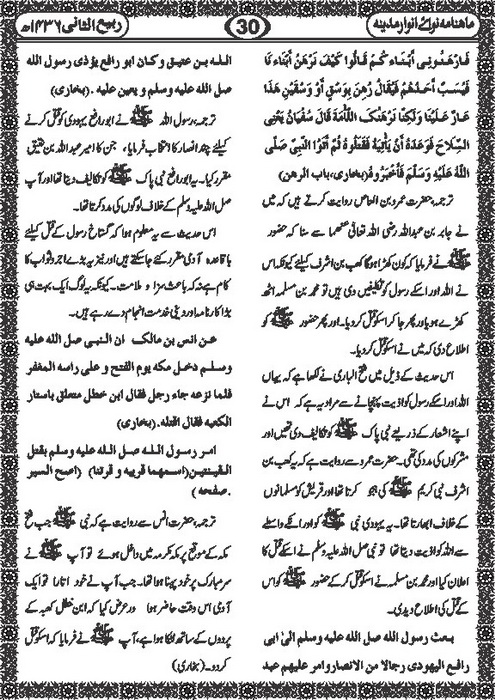 ماہنامہ نوائے انوار مدینہ
30
ربیع الثانی ۱۴۳۶ھ
فارهنونی أبناء کم قالوا کیف نرهن أبناء نا
فیسب أحدهم فیقال رهن بوسق أو وسقین هذا
عار علینا ولکنا نرهنک اللأمة قال سفیان یعنی
السلاح فوعده أن یأتیه فقتلوه ثم أتوا النبی صلی
الله علیه وسلم فأخبروه (بخاری، باب الرهن)
ترجمہ: حضرت عمرو بن العاص روایت کرتے ہیں کہ میں
نے جابر بن عبداللہ رضی اللہ تعالیٰ عنھما سے سنا کہ حضور
ﷺ نے فرمایا کہ کون کھڑا ہوگا کعب بن اشرف کیلئے کیونکہ اس
نے اللہ اور اسکے رسول کو تکلیفیں دی ہیں تو محمد بن مسلمہ اٹھ
کھڑے ہو یا اور پھر جا کر اسکو قتل کر دیا۔ اور پھر حضور ﷺ کو
اطلاع دی کہ میں نے اسکو قتل کر دیا۔
اس حدیث کے ذیل میں فتح الباری نے لکھا ہے کہ یہاں
اللہ اور اسکے رسول کو اذیت پہنچانے سے مراد یہ ہے کہ اس نے
اپنے اشعار کے ذریعے نبی پاک ﷺ کو تکالیف دی تھیں اور
مشرکوں کی مدد کی تھی۔ حضرت عمرو سے روایت ہے کہ یہ کعب بن
اشرف نبی کریم ﷺ کی ہجو کرتا تھا اور قریش کو مسلمانوں
کے خلاف ابھارتا تھا۔ یہ یہودی نبی ﷺ کو اور انکے واسطے
سے اللہ کو اذیت دیتا تھا تو نبی صل اللہ علیہ وسلم نے اسکے قتل کا
اعلان کیا اور محمد بن مسلمہ نے اسکو قتل کر کے حضور ﷺ کو اس
کے قتل کی اطلاع دیدی۔
بعث رسول الله صل الله علیه وسلم الی ابی
رافع الیهودی رجالا من الانصار وامر علیهم عبد
الله بن عتیق وکان ابو رافع یوذی رسول الله
صل الله علیه وسلم و یعین علیه۔ (بخاری)
ترجمہ: رسول اللہ ﷺ نے ابورافع یہودی کو قتل کرنے
کیلئے چند انصار کا انتخاب فرمایا، جن کا امیر عبداللہ بن عتیق
مقرر کیا۔ یہ ابو رافع نبی پاک ﷺ کو تکالیف دیتا تھا اور آپ
صل اللہ علیہ وسلم کے خلاف لوگوں کی مدد کرتا تھا۔
اس حدیث سے یہ معلوم ہوا کہ گستاخ رسول کے قتل کیلئے
با قاعدہ آدمی مقرر کئے جا سکتے ہیں اور نیز یہ بڑے اجر و ثواب کا
کام ہے نہ کہ باعث سزا و ملامت۔ کیونکہ یہ لوگ ایک بہت ہی
بڑا کارنامہ اور دینی خدمت انجام دے رہے ہیں۔
عن انس بن مالک ان النبی صل الله علیه
وسلم دخل مکه یوم الفتح و علی راسه المغفر
فلما نزعه جاء رجل فقال ابن خطل متعلق باستار
الکعبه فقال اقتله۔ (بخاری)
امر رسول الله صل الله علیه وسلم بقتل
القینتین (اسمهما قریبه و قرتنا) (اصح السیر
۔ صفحه)
ترجمہ: حضرت انس سے روایت ہے کہ نبی ﷺ جب فتح
مکہ کے موقع پر مکہ مکرمہ میں داخل ہوئے تو آپ ﷺ نے
سر مبارک پر خود پہنا ہوا تھا۔ جب آپ نے خود اتارا تو ایک
آدمی اس وقت حاضر ہوا ور عرض کیا کہ ابن خطل کعبہ کے
پردوں کے ساتھ لٹکا ہوا ہے، آپ ﷺ نے فرمایا کہ اسکو قتل
کردو۔ (بخاری)